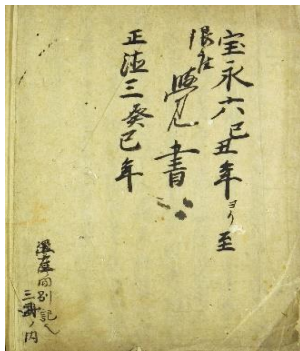 宝永六己丑年ヨリ至
限在
覺書
正徳三癸巳年
同別記入
三冊ノ内